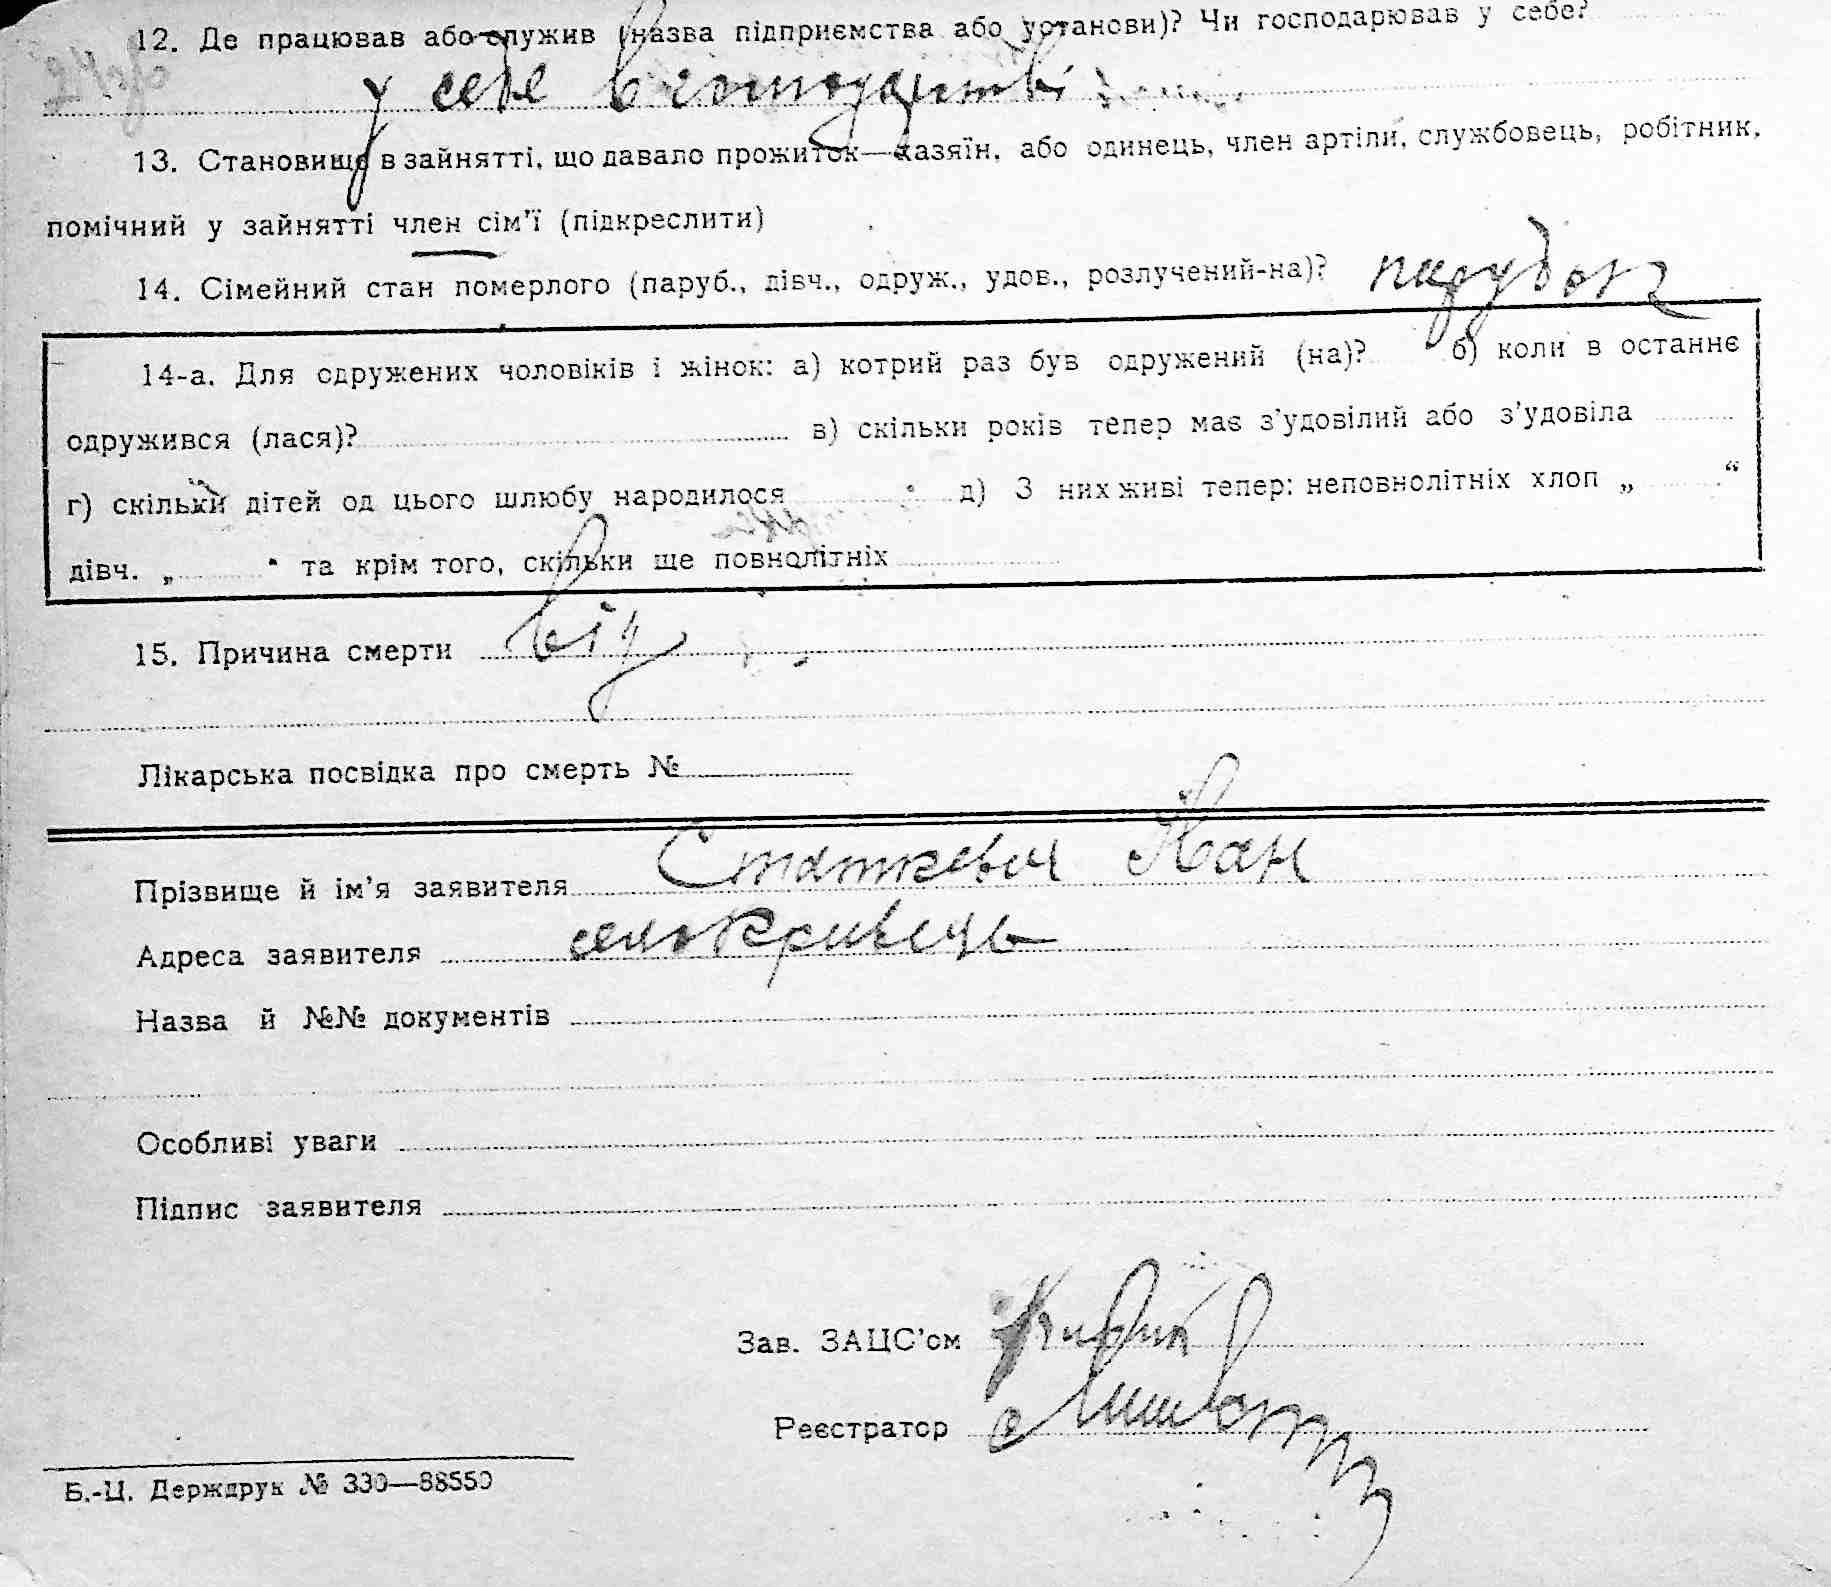 12. Де працював або служив (назва підприємства або установи)? Чи господарював у себе?
у себе в господарстві
13. Становище в зайнятті, що давало прожиток—хазяїн, або одинець, член артіли, службовець, робітник,
помічний у зайнятті член сім'ї (підкреслити)
14. Сімейний стан померлого (паруб., дівч., одруж., удов., розлучений-на)? парубок
14-а. Для одружених чоловіків і жінок: а) котрий раз був одружений (на)? б) коли в останнє
одружився (лася)? в) скільки років тепер має з'удовілий або з'удовіла
г) скільки дітей од цього шлюбу народилося д) З них живі тепер: неповнолітніх хлоп „ “
дівч. „ “ та крім того, скільки ще повнолітніх
15. Причина смерти від
Лікарська посвідка про смерть №
Прізвище й ім'я заявителя Статкевич Іван
Адреса заявителя село Кривець
Назва й №№ документів
Особливі уваги
Підпис заявителя
Зав. ЗАЦС'ом
Реєстратор
Б.-Ц. Держдрук № 330—88550